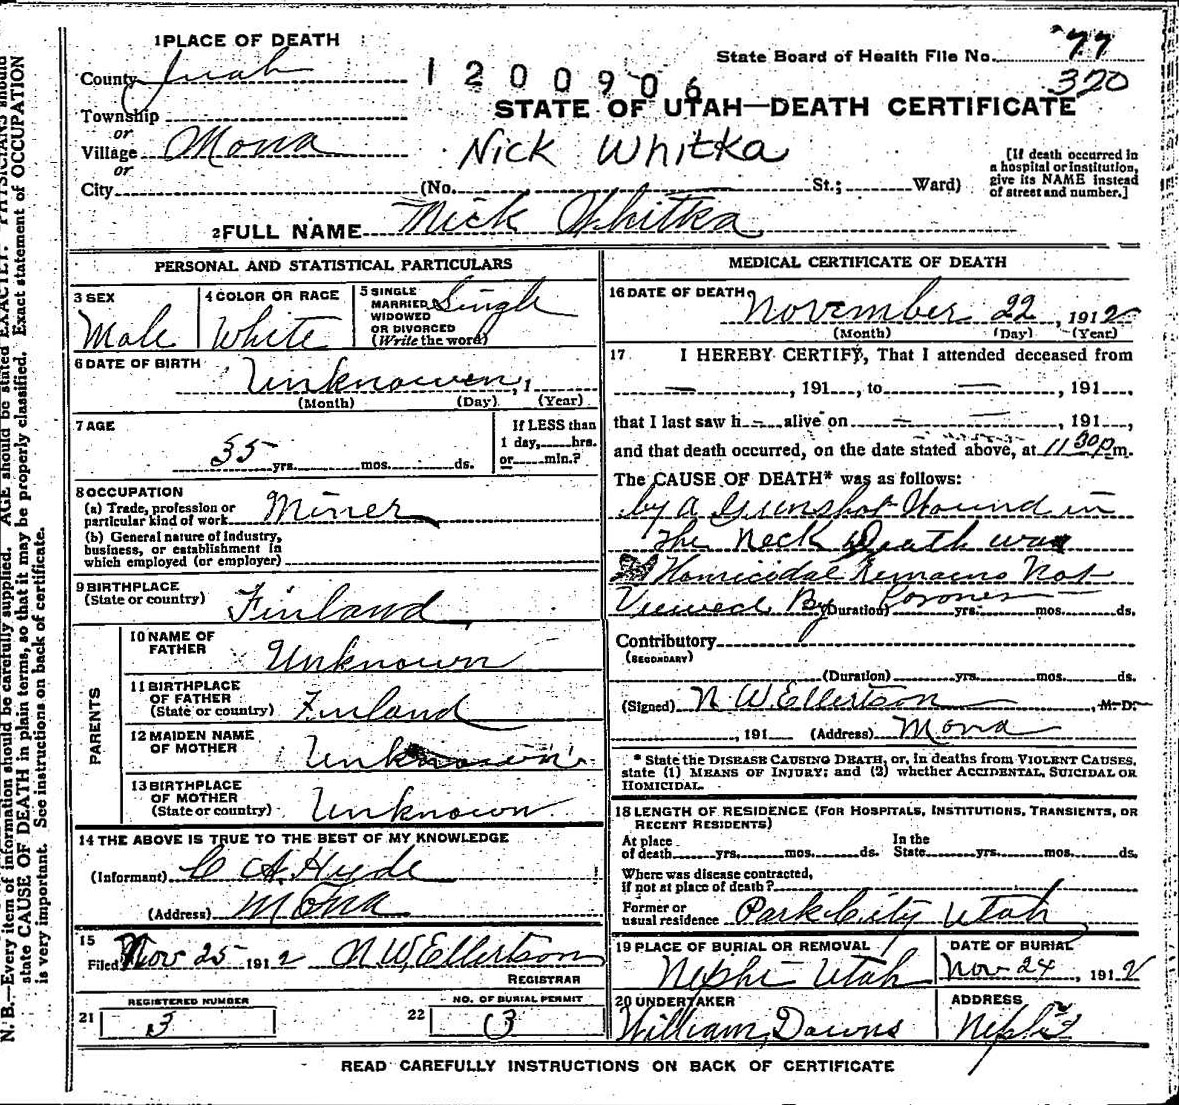 1 PLACE OF DEATH
County Juab
1200906
State Board of Health File No. 77
320
STATE OF UTAH—DEATH CERTIFICATE
Township
or
Village Mona
or
City
Nick Whitka
(No. St.; Ward)
[If death occurred in
a hospital or institution,
give its NAME instead
of street and number.]
2 FULL NAME Nick Whitka
PERSONAL AND STATISTICAL PARTICULARS
3 SEX
Male
4 COLOR OR RACE
White
5 SINGLE
MARRIED
WIDOWED
OR DIVORCED
(Write the word)
Single
6 DATE OF BIRTH
Unknowen, 1
(Month) (Day) (Year)
7 AGE
35 yrs. mos. ds.
If LESS than
1 day, hrs.
or min.?
8 OCCUPATION
(a) Trade, profession or
particular kind of work Miner
(b) General nature of industry,
business, or establishment in
which employed (or employer)
9 BIRTHPLACE
(State or country) Finland
PARENTS
10 NAME OF
FATHER Unknown
11 BIRTHPLACE
OF FATHER
(State or country) Finland
12 MAIDEN NAME
OF MOTHER Unknown
13 BIRTHPLACE
OF MOTHER
(State or country) Unknown
14 THE ABOVE IS TRUE TO THE BEST OF MY KNOWLEDGE
(Informant) C A. Hyde
(Address) Mona
15
Filed Nov 25 1912 N. W. Ellertson
REGISTRAR
REGISTERED NUMBER
21 3
NO. OF BURIAL PERMIT
22 3
MEDICAL CERTIFICATE OF DEATH
16 DATE OF DEATH
November 22, 1912
(Month) (Day) (Year)
17 I HEREBY CERTIFY, That I attended deceased from
— , 191 , to — , 191 ,
that I last saw h — alive on — , 191 ,
and that death occurred, on the date stated above, at 11 00 P m.
The CAUSE OF DEATH* was as follows:
by a Gunshot Wound in
the Neck Death was
Homicidal Remains Not
Viewed By Coroner (Duration) yrs. mos. ds.
Contributory
(SECONDARY)
(Duration) yrs. mos. ds.
(Signed) N. W. Ellertson M. D.
, 191 (Address) Mona
* State the DISEASE CAUSING DEATH, or, in deaths from VIOLENT CAUSES,
state (1) MEANS OF INJURY; and (2) whether ACCIDENTAL, SUICIDAL OR
HOMICIDAL.
18 LENGTH OF RESIDENCE (FOR HOSPITALS, INSTITUTIONS, TRANSIENTS, OR
RECENT RESIDENTS)
At place
of death yrs. mos. ds.
In the
State yrs. mos. ds.
Where was disease contracted,
if not at place of death?
Former or
usual residence Park City Utah
19 PLACE OF BURIAL OR REMOVAL
Nephi Utah
DATE OF BURIAL
Nov 24, 1912
20 UNDERTAKER
William Downs
ADDRESS
Nephi
READ CAREFULLY INSTRUCTIONS ON BACK OF CERTIFICATE
N. B.—Every item of information should be carefully supplied. AGE should be stated EXACTLY. PHYSICIANS should
state CAUSE OF DEATH in plain terms, so that it may be properly classified. Exact statement of OCCUPATION
is very important. See instructions on back of certificate.